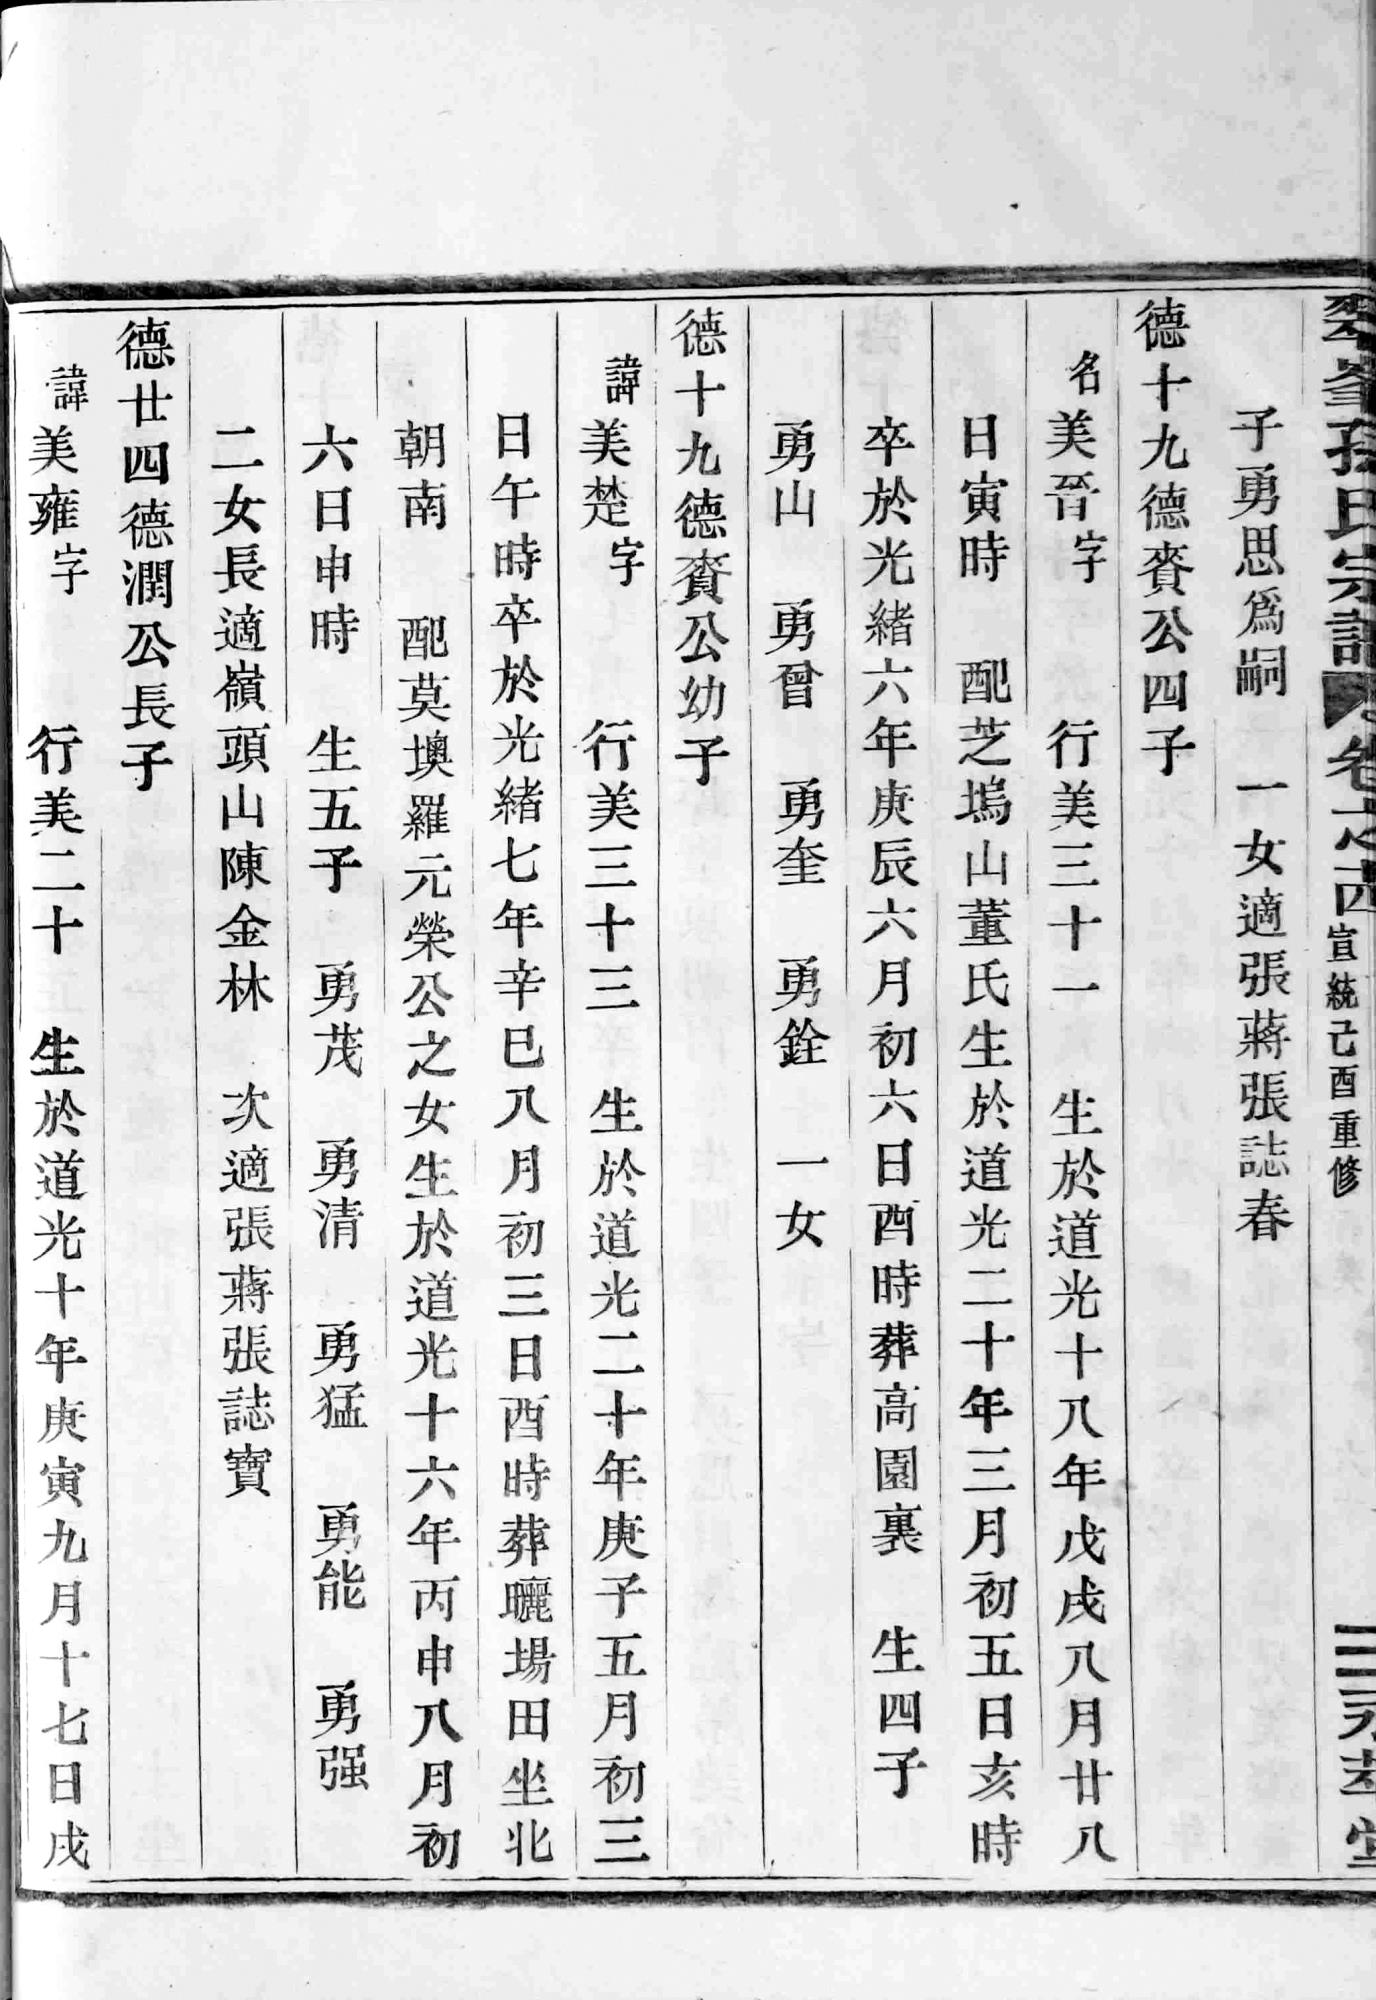 翠峯孫氏宗譜 卷之四 宣統己酉重修
子勇思爲嗣 一女適張蔣張誌春
德十九德賚公四子
名美晉字 行美三十一 生於道光十八年戊戌八月廿八
日寅時 配芝塢山董氏生於道光二十年三月初五日亥時
卒於光緒六年庚辰六月初六日酉時葬高園裏 生四子
勇山 勇曾 勇奎 勇銓 一女
德十九德賚公幼子
諱美楚字 行美三十三 生於道光二十年庚子五月初三
日午時卒於光緒七年辛巳八月初三日酉時葬曬場田坐北
朝南 配莫墺羅元榮公之女生於道光十六年丙申八月初
六日申時 生五子 勇茂 勇清 勇猛 勇能 勇强
二女長適嶺頭山陳金林 次適張蔣張誌寶
德廿四德潤公長子
諱美雍字 行美二十 生於道光十年庚寅九月十七日戌